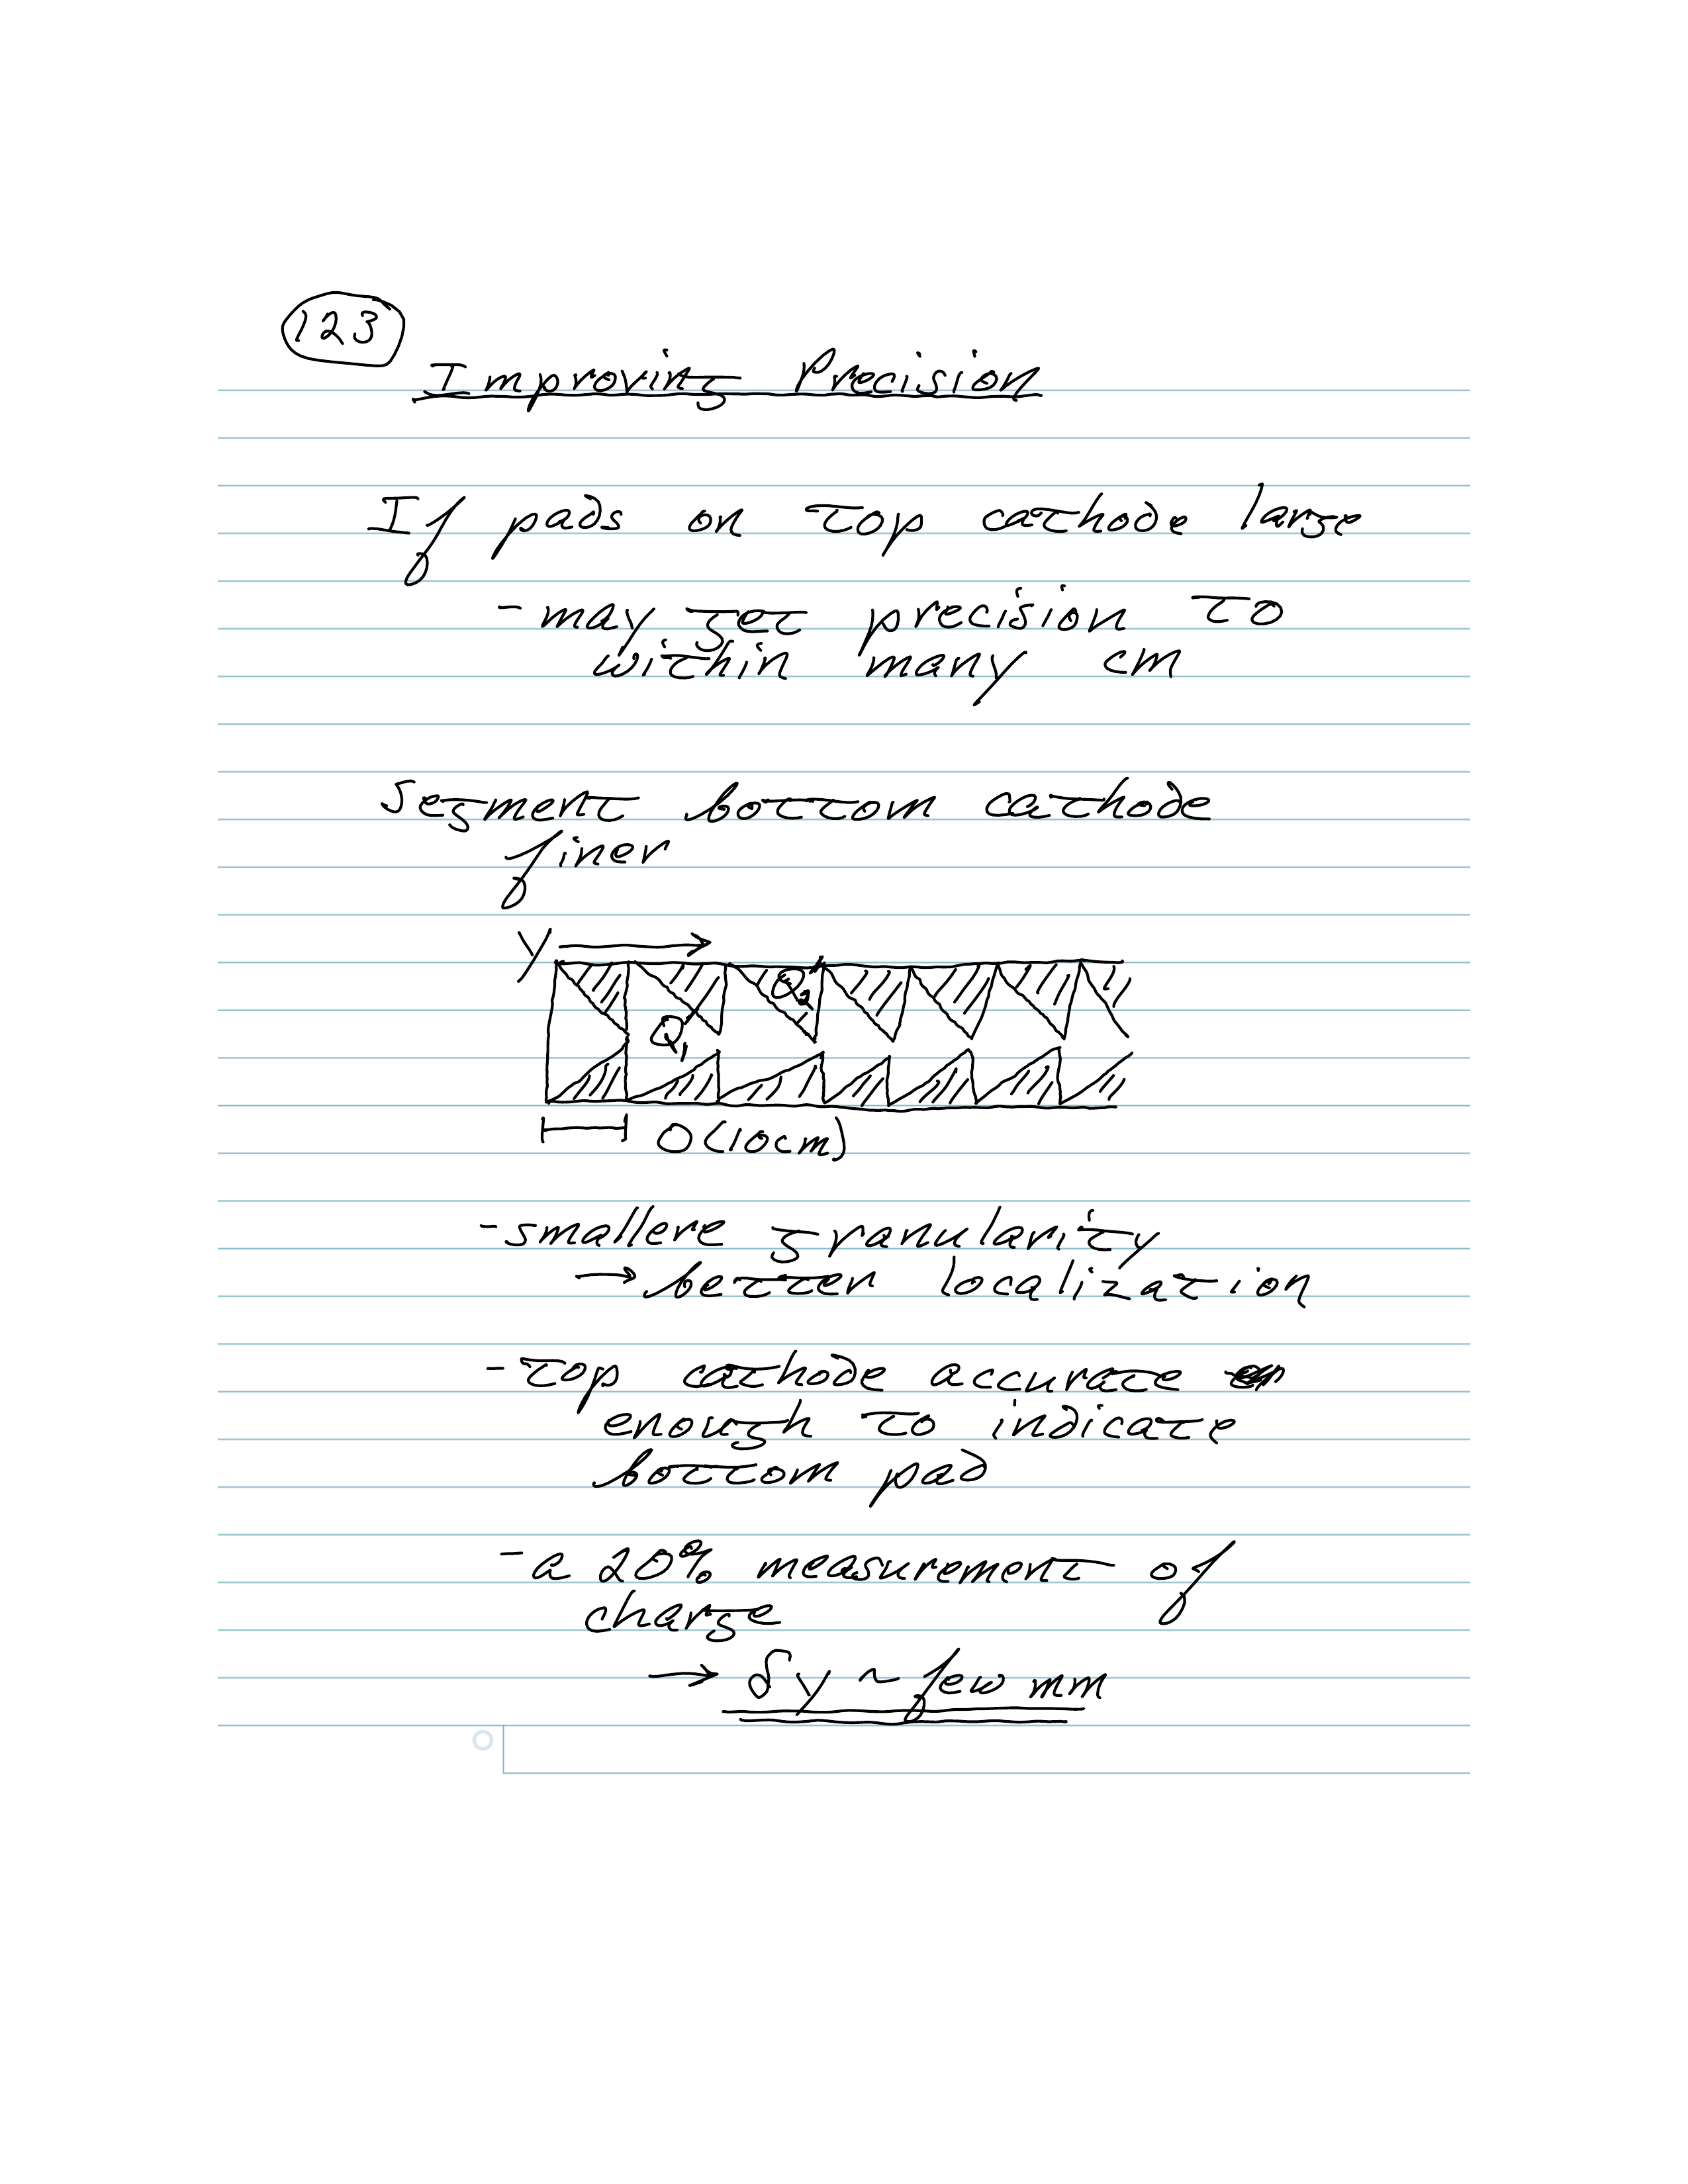 123
Improving Precision
If pads on top cathode large
- may get precision to
within many cm
Segment bottom cathode
finer
y →
Q₂
Q₁
O(10cm)
- smallere granularity
→ better localization
- top cathode accurate
enough to indicate
bottom pad
- a 20% measurement of
charge
→ δy ~ few mm